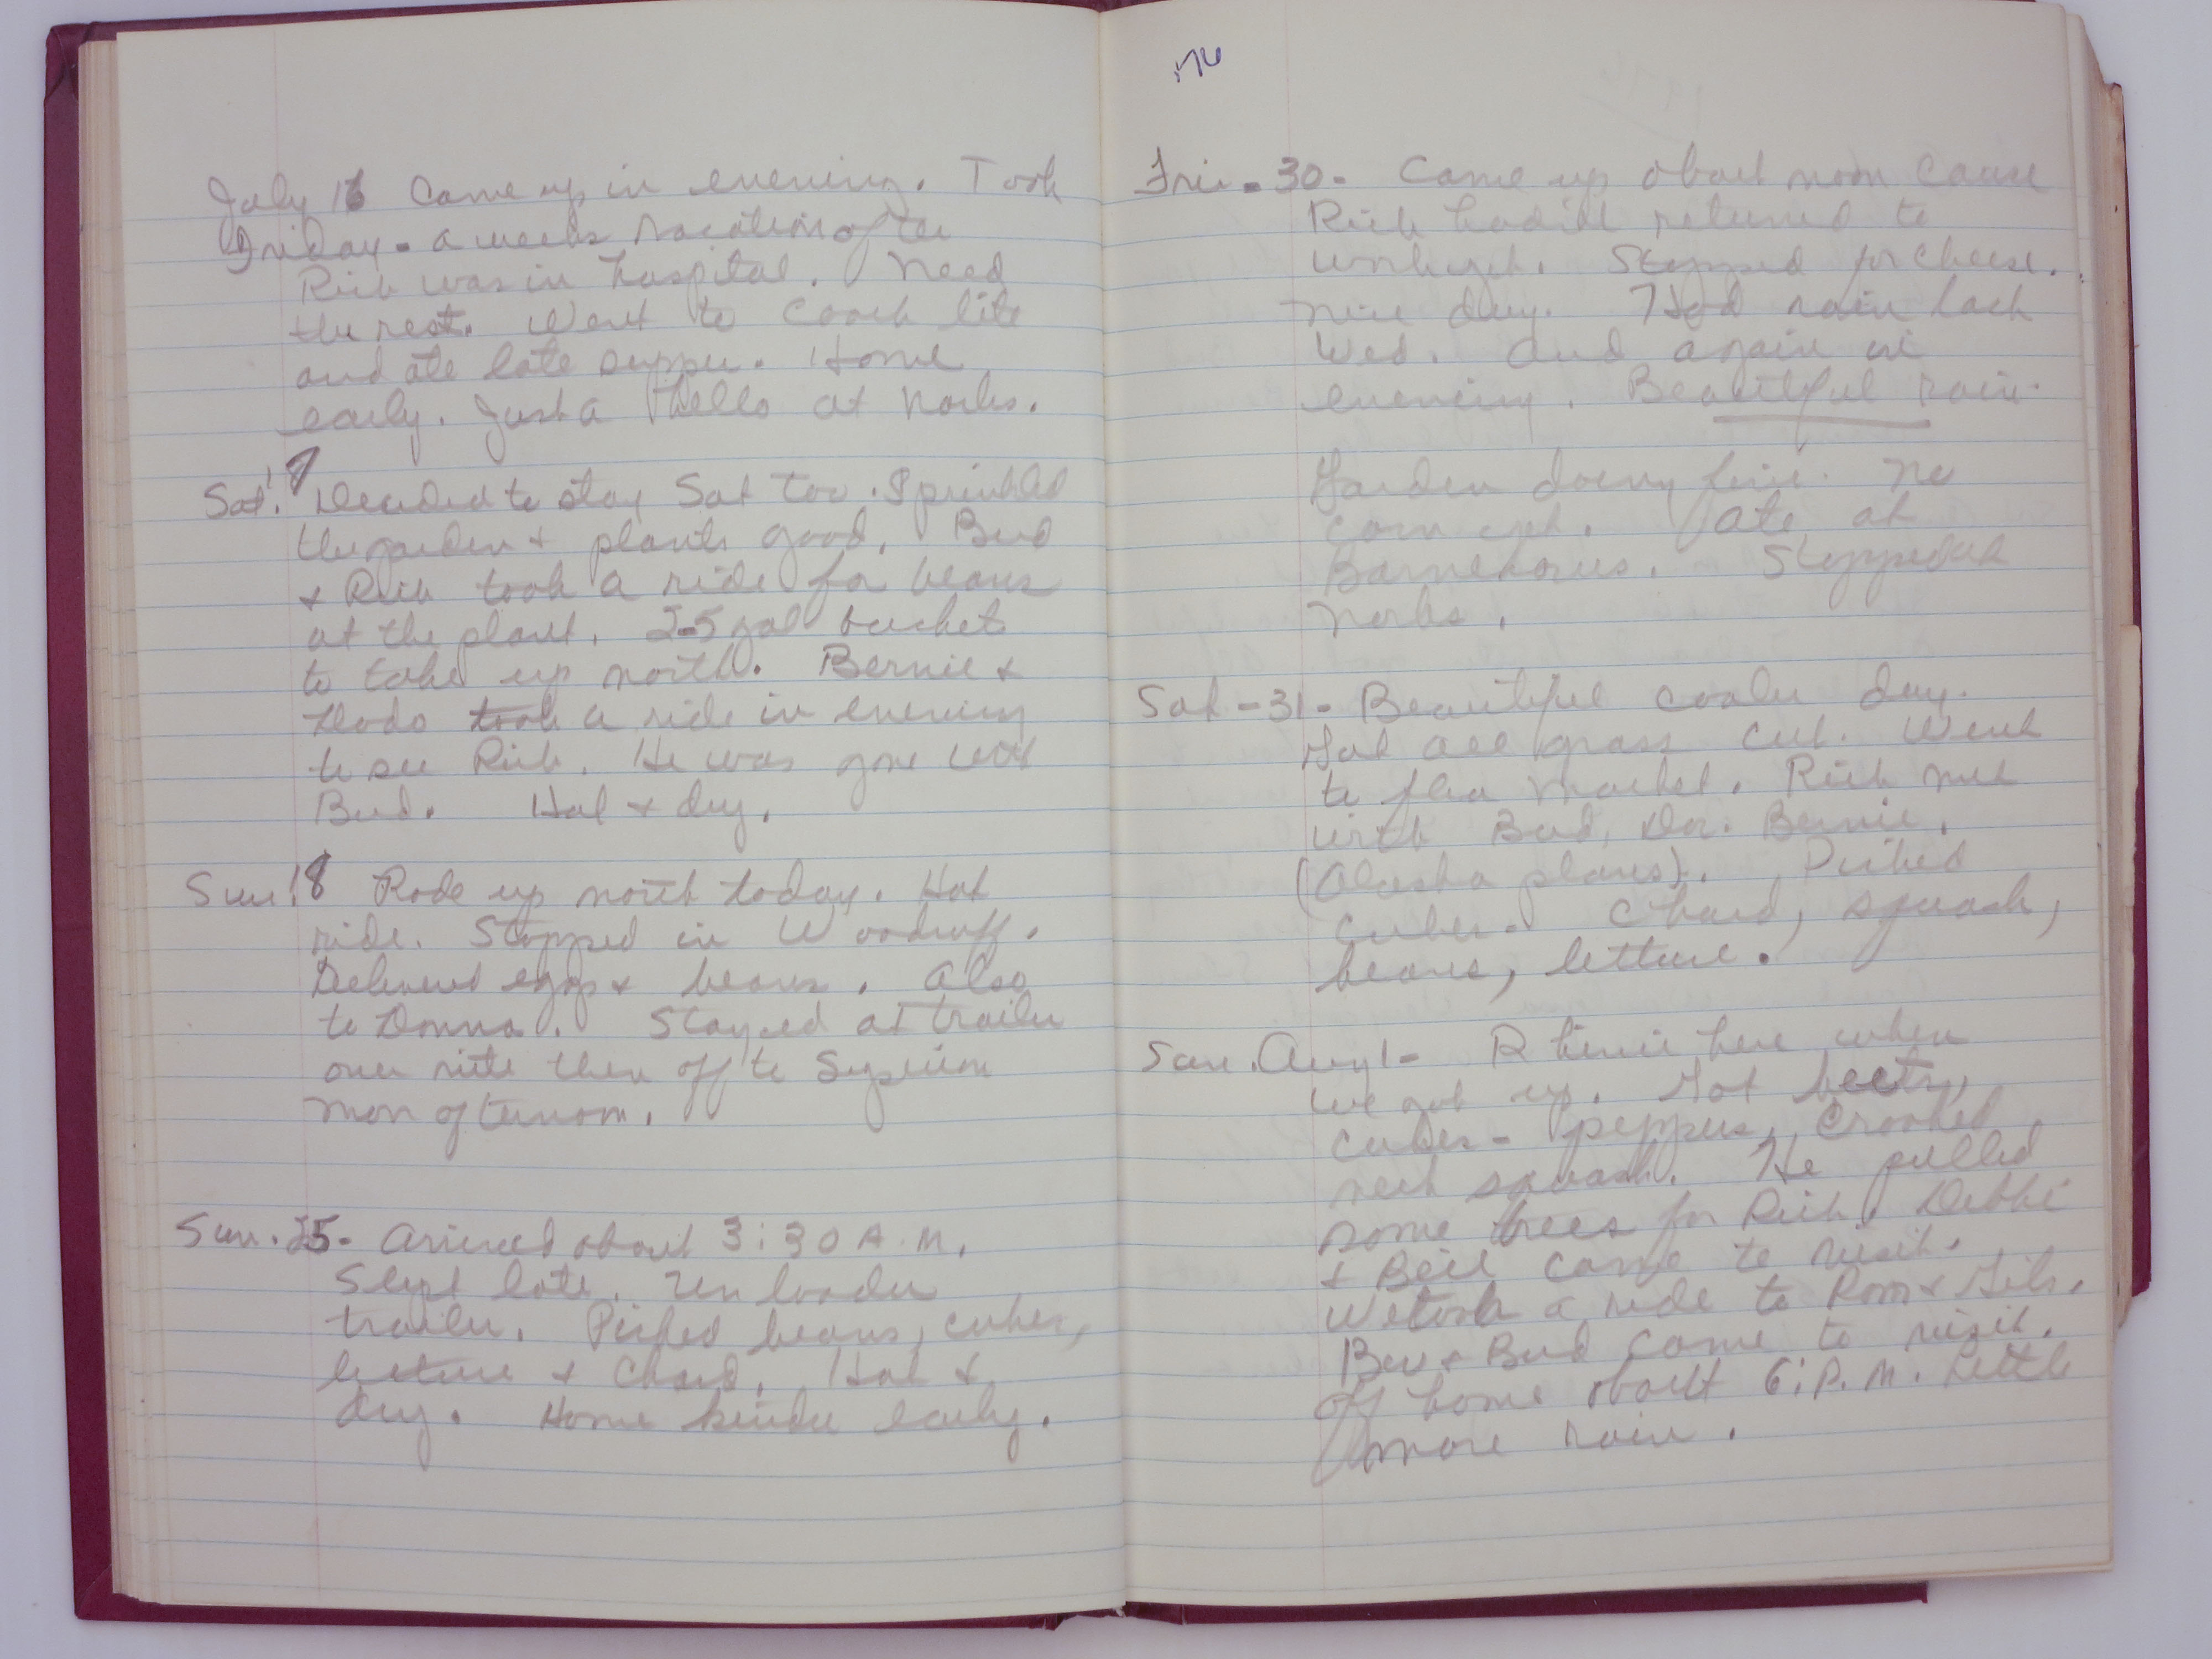 July 16 Came up in evening. Took
Friday - a weeks vacation after
Rich was in hospital. Need
the rest. Went to Coach lite
and ate late supper. Home
early. Just a hello at Norbs.
Sat. 17 Decided to stay Sat too. Sprinkled
the garden & plants good. Bud
& Rich took a ride for beans
at the plant. 2-5 gal buckets
to take up north. Bernie &
Dodo took a ride in evening
to see Rich. He was gone with
Bud. Hot & dry.
Sun. 18 Rode up north today. Hot
ride. Stopped in Woodruff.
Delivered eggs & beans. Also
to Donna. Stayed at trailer
over nite then off to
Mon afternoon.
Sun. 25- Arrived about 3:30 A.M.
Slept late. Un loaded
trailer. Picked beans, cukes,
lettuce & Chard. Hot &
dry. Home kinda early.
'76
Fri - 30- Came up about noon cause
Rich hadn't returned to
work yet. Stopped for cheese.
Nice day. Had rain last
Wed. and again in
evening. Beautiful rain.
Garden doing fine. No
corn yet. Ate at
Stopped at
Norbs.
Sat - 31 - Beautiful cooler day.
Got all grass cut. Went
to flea market. Rich met
with Bud, Dor. Bernie.
(Alaska plans). Picked
cukes - Chard, squash,
beans, lettuce.
Sun. Aug 1 - here when
we got up. Got beets,
cukes - peppers, Crooked
neck squash. He pulled
some trees for Rich. Debbi
& Bill came to visit.
We took a ride to Rom & Gibs.
Bev & Bud came to visit.
Off home about 6:P.M. Little
more rain.